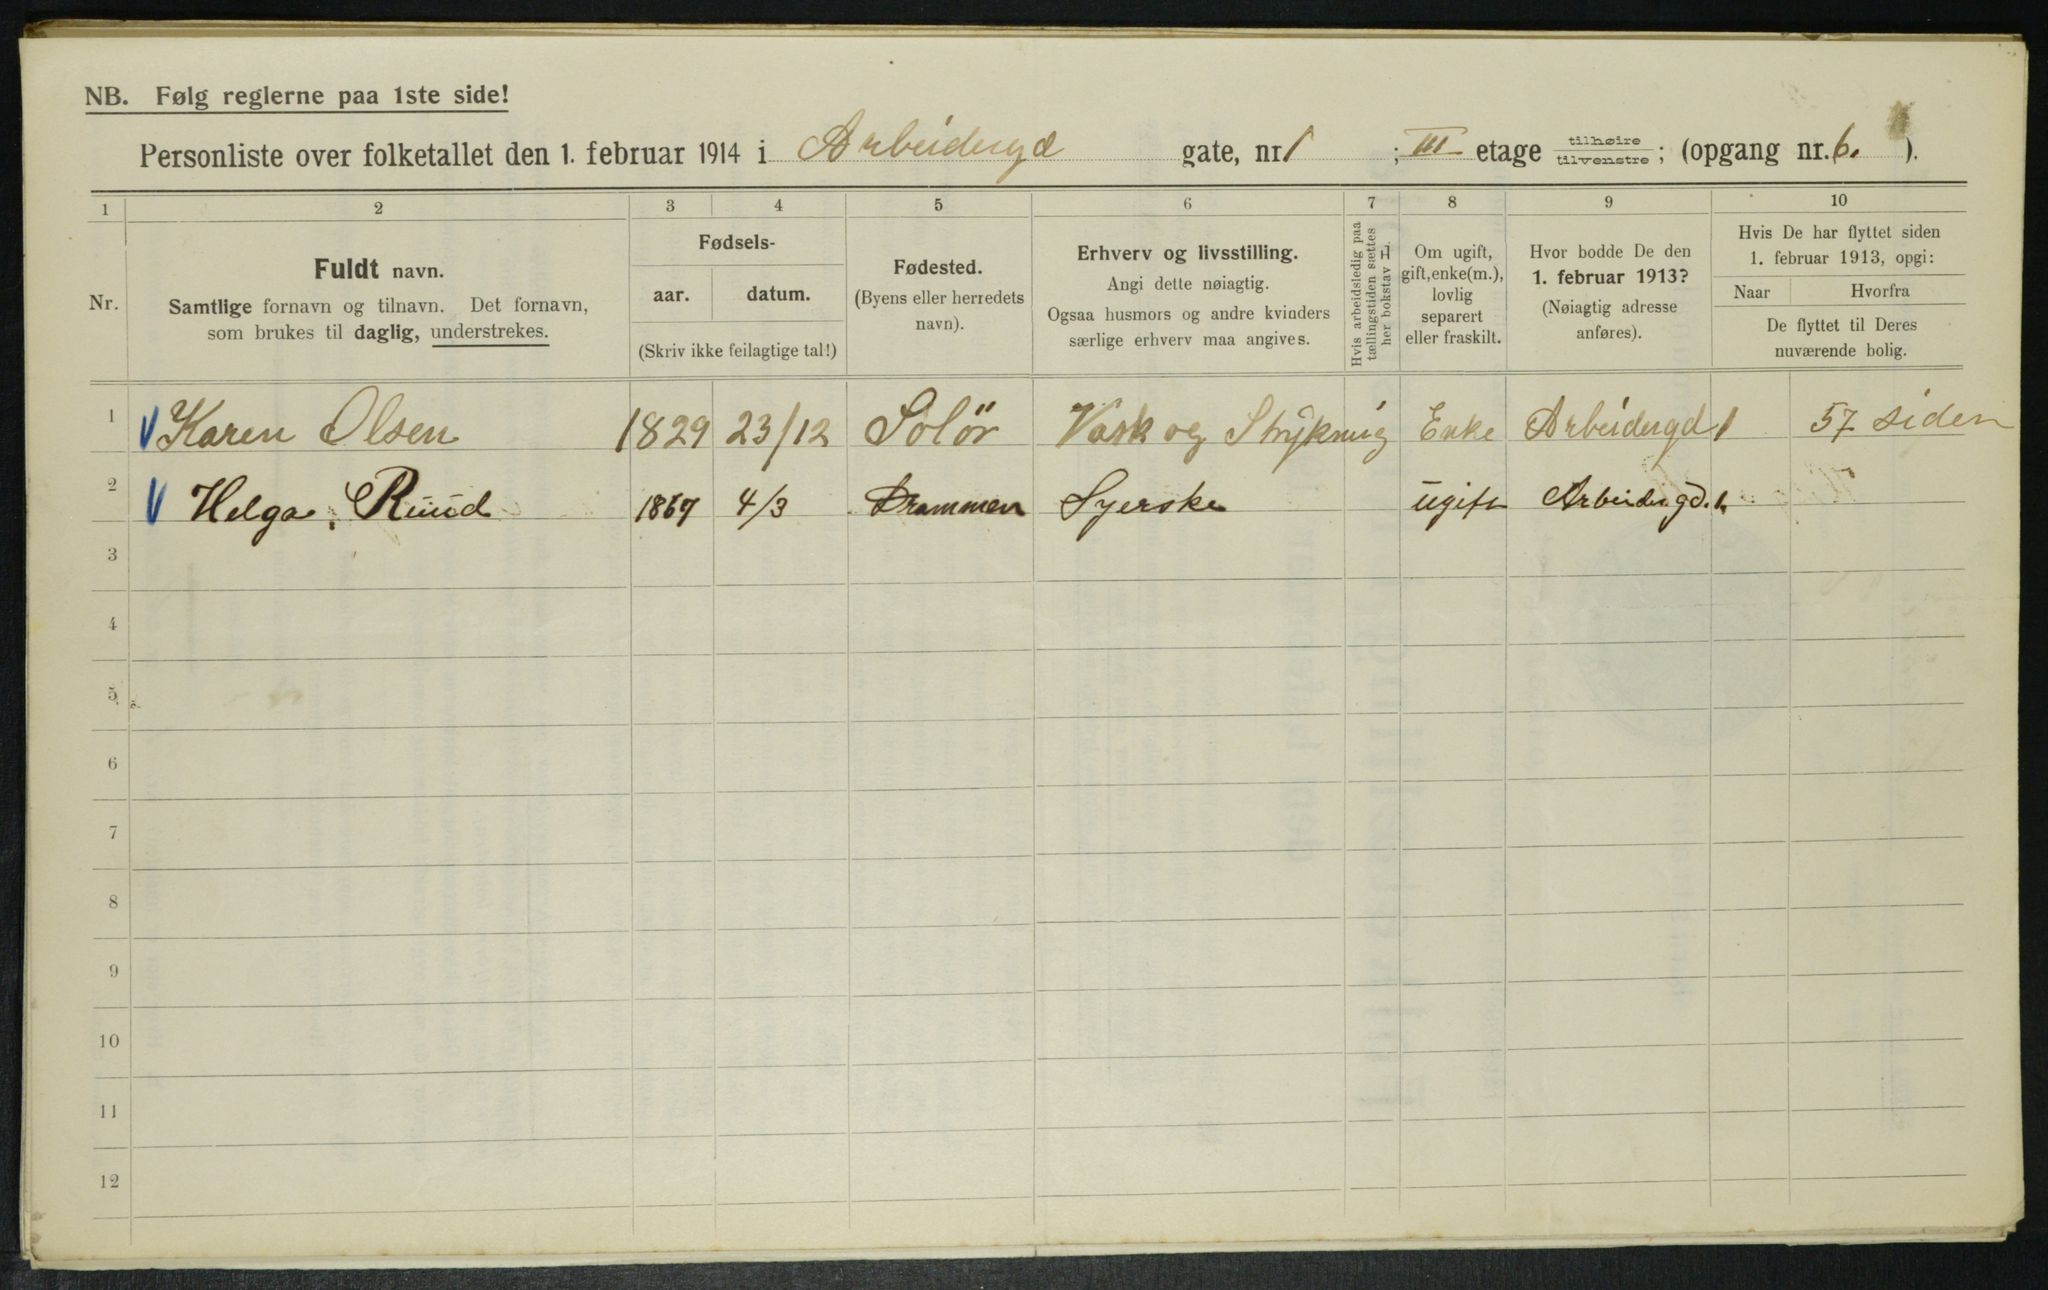 NB. Følg reglerne paa 1ste side!
Personliste over folketallet den 1. februar 1914 i Arbeidergd gate, nr. 1 ; III etage tilhøire/tilvenstre ; (opgang nr. 6. ).
1 2 3 4 5 6 7 8 9 10
Nr.
Fuldt navn.
Samtlige fornavn og tilnavn. Det fornavn,
som brukes til daglig, understrekes.
Fødsels-
aar. datum.
(Skriv ikke feilagtige tal!)
Fødested.
(Byens eller herredets
navn).
Erhverv og livsstilling.
Angi dette nøiagtig.
Ogsaa husmors og andre kvinders
særlige erhverv maa angives.
Hvis arbeidsledig paa
tællingstiden sættes
her bokstav l
Om ugift,
gift, enke(m.),
lovlig
separert
eller fraskilt.
Hvor bodde De den
1. februar 1913?
(Nøiagtig adresse
anføres).
Hvis De har flyttet siden
1. februar 1913, opgi:
Naar Hvorfra
De flyttet til Deres
nuværende bolig.
1 Karen Olsen 1829 23/12 Solör Vask og Strykning Enke Arbeidergd 1 57 siden
2 Helga Ruud 1867 4/3 Drammen Syerske ugift Arbeidergd. 1.
3
4
5
6
7
8
9
10
11
12